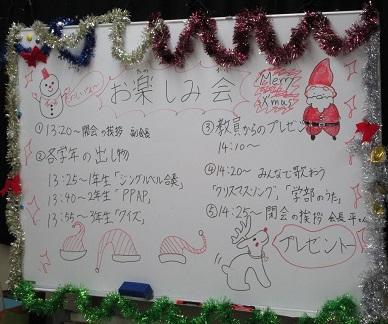 お楽しみ会
Merry
Xmas
①13:20〜開会の挨拶 副会長
②各学年の出し物
13:25〜1年生「ジングルベル合奏」
13:40〜2年生「PPAP」
13:55〜3年生「クイズ」
③教員からのプレゼント
14:10〜
④14:20〜 みんなで歌おう
「クリスマスソング」「学部のうた」
⑤14:25〜 閉会の挨拶 会長
プレゼント